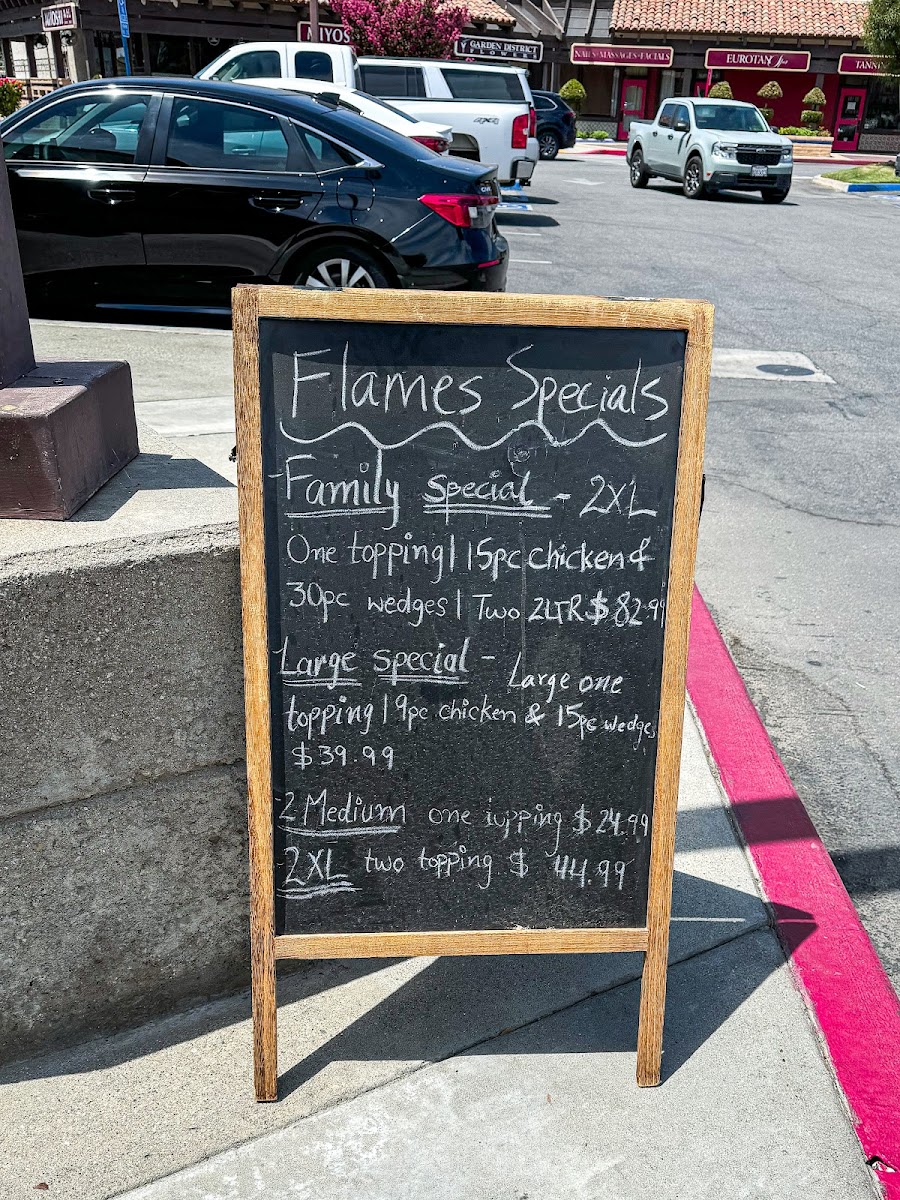 MIYOS
GARDEN DISTRICT
FLOWERS
NAILS•MASSAGES•FACIALS
EUROTAN Spa
TANN
4X4
Flames Specials
Family special - 2XL
One topping| 15pc chicken &
30pc wedges| Two 2LTR $82.99
Large special - Large one
topping| 9pc chicken & 15pc wedges
$39.99
2 Medium one topping $24.99
2XL two topping $ 44.99